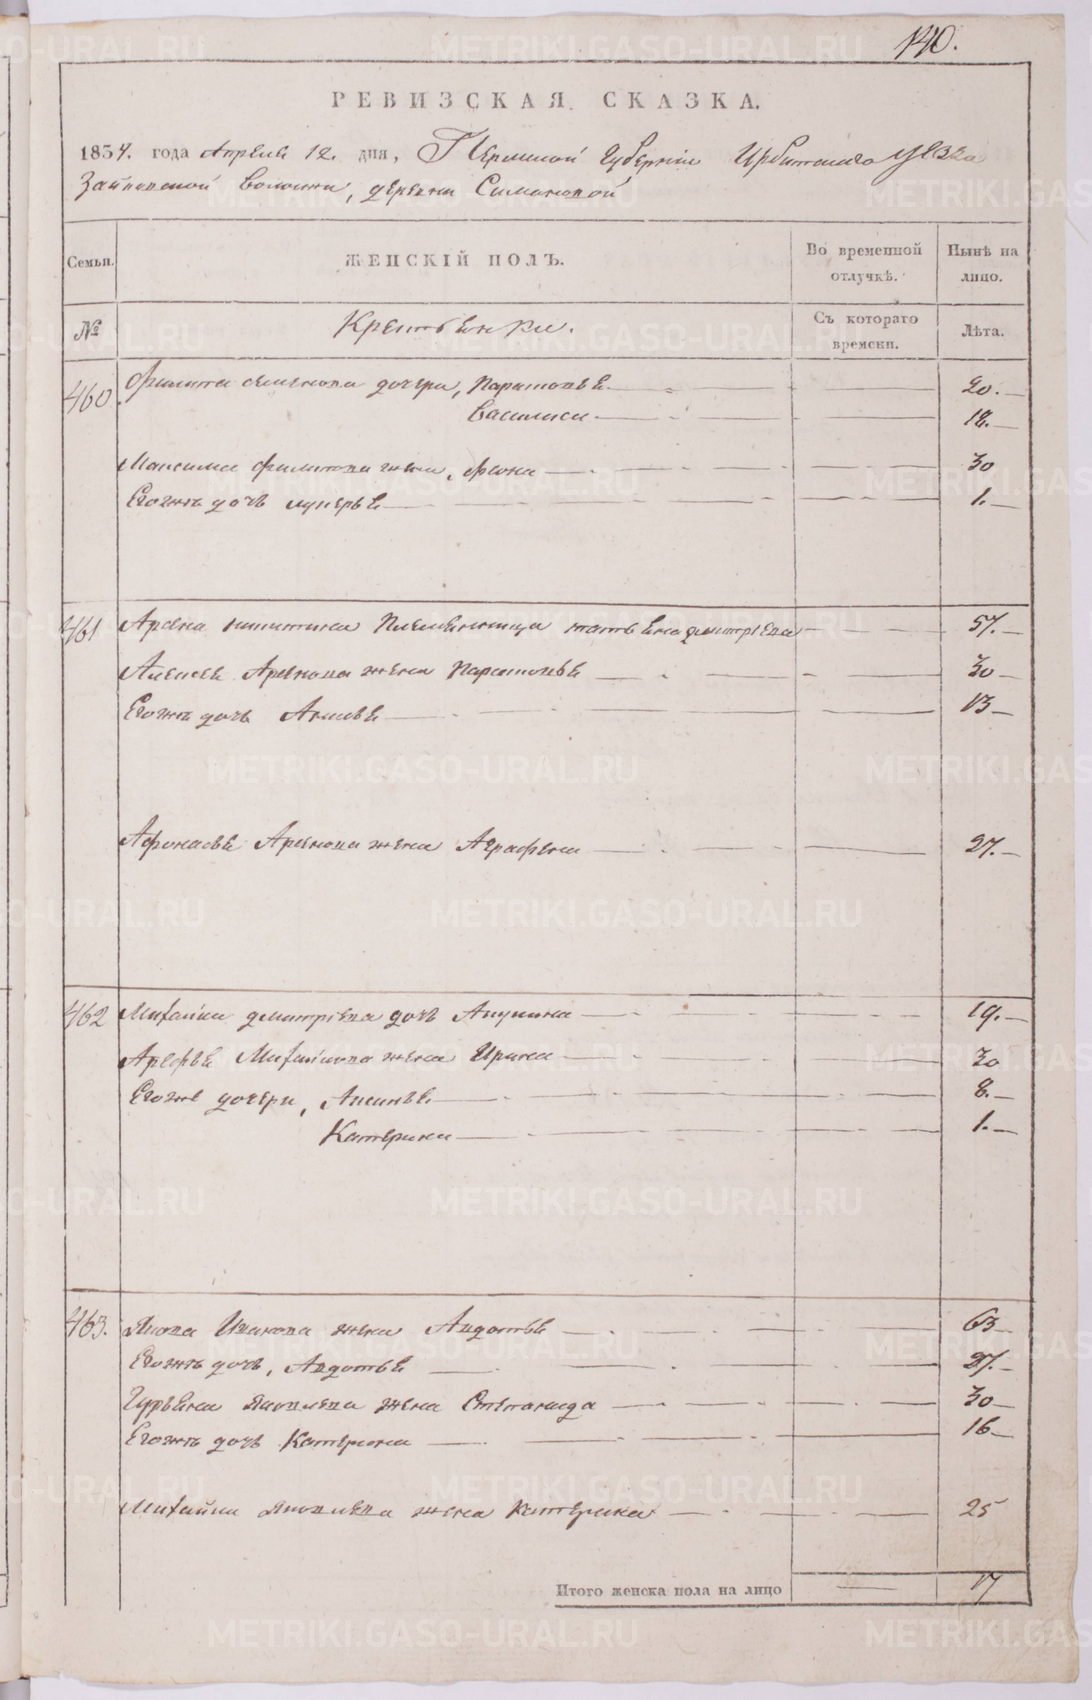 140.
РЕВИЗСКАЯ СКАЗКА.
1834. года Апреля 12. дня, Пермской Губернiи Ирбитскаго Уѣзда
Зайковской волости, деревни Симановой
Семьи.
ЖЕНСКIЙ ПОЛЪ.
Во временной отлучкѣ.
Нынѣ на лицо.
№
Крестьянки.
Съ котораго времени.
Лѣта.
460 Филита семенова дочери, Парасковья 20.
Василиса 18.
Максима Филитова жена, Фекла 30
Егожъ дочь Лукерья 1.
461 Арсена никитина Племянница татьяна дмитрiева 57.
Алексея Арсенова жена Парасковья 30
Егожъ дочь Аксинья 13
Афонасья Арсенова жена Аграфена 27.
462 Михайла дмитрiева дочь Акулина 19.
Арефья Михайлова жена Ирина 30
Егоже дочери, Аксинья 8.
Катерина 1.
463. Якова Иванова жена Авдотья 63
Егожъ дочь, Авдотья 27.
Гурьяна Яковлева жена Степанида 30
Егожъ дочь Катерина 16
Михайла Яковлева жена Катерина 25
Итого женска пола на лицо 17
METRIKI.GASO-URAL.RU